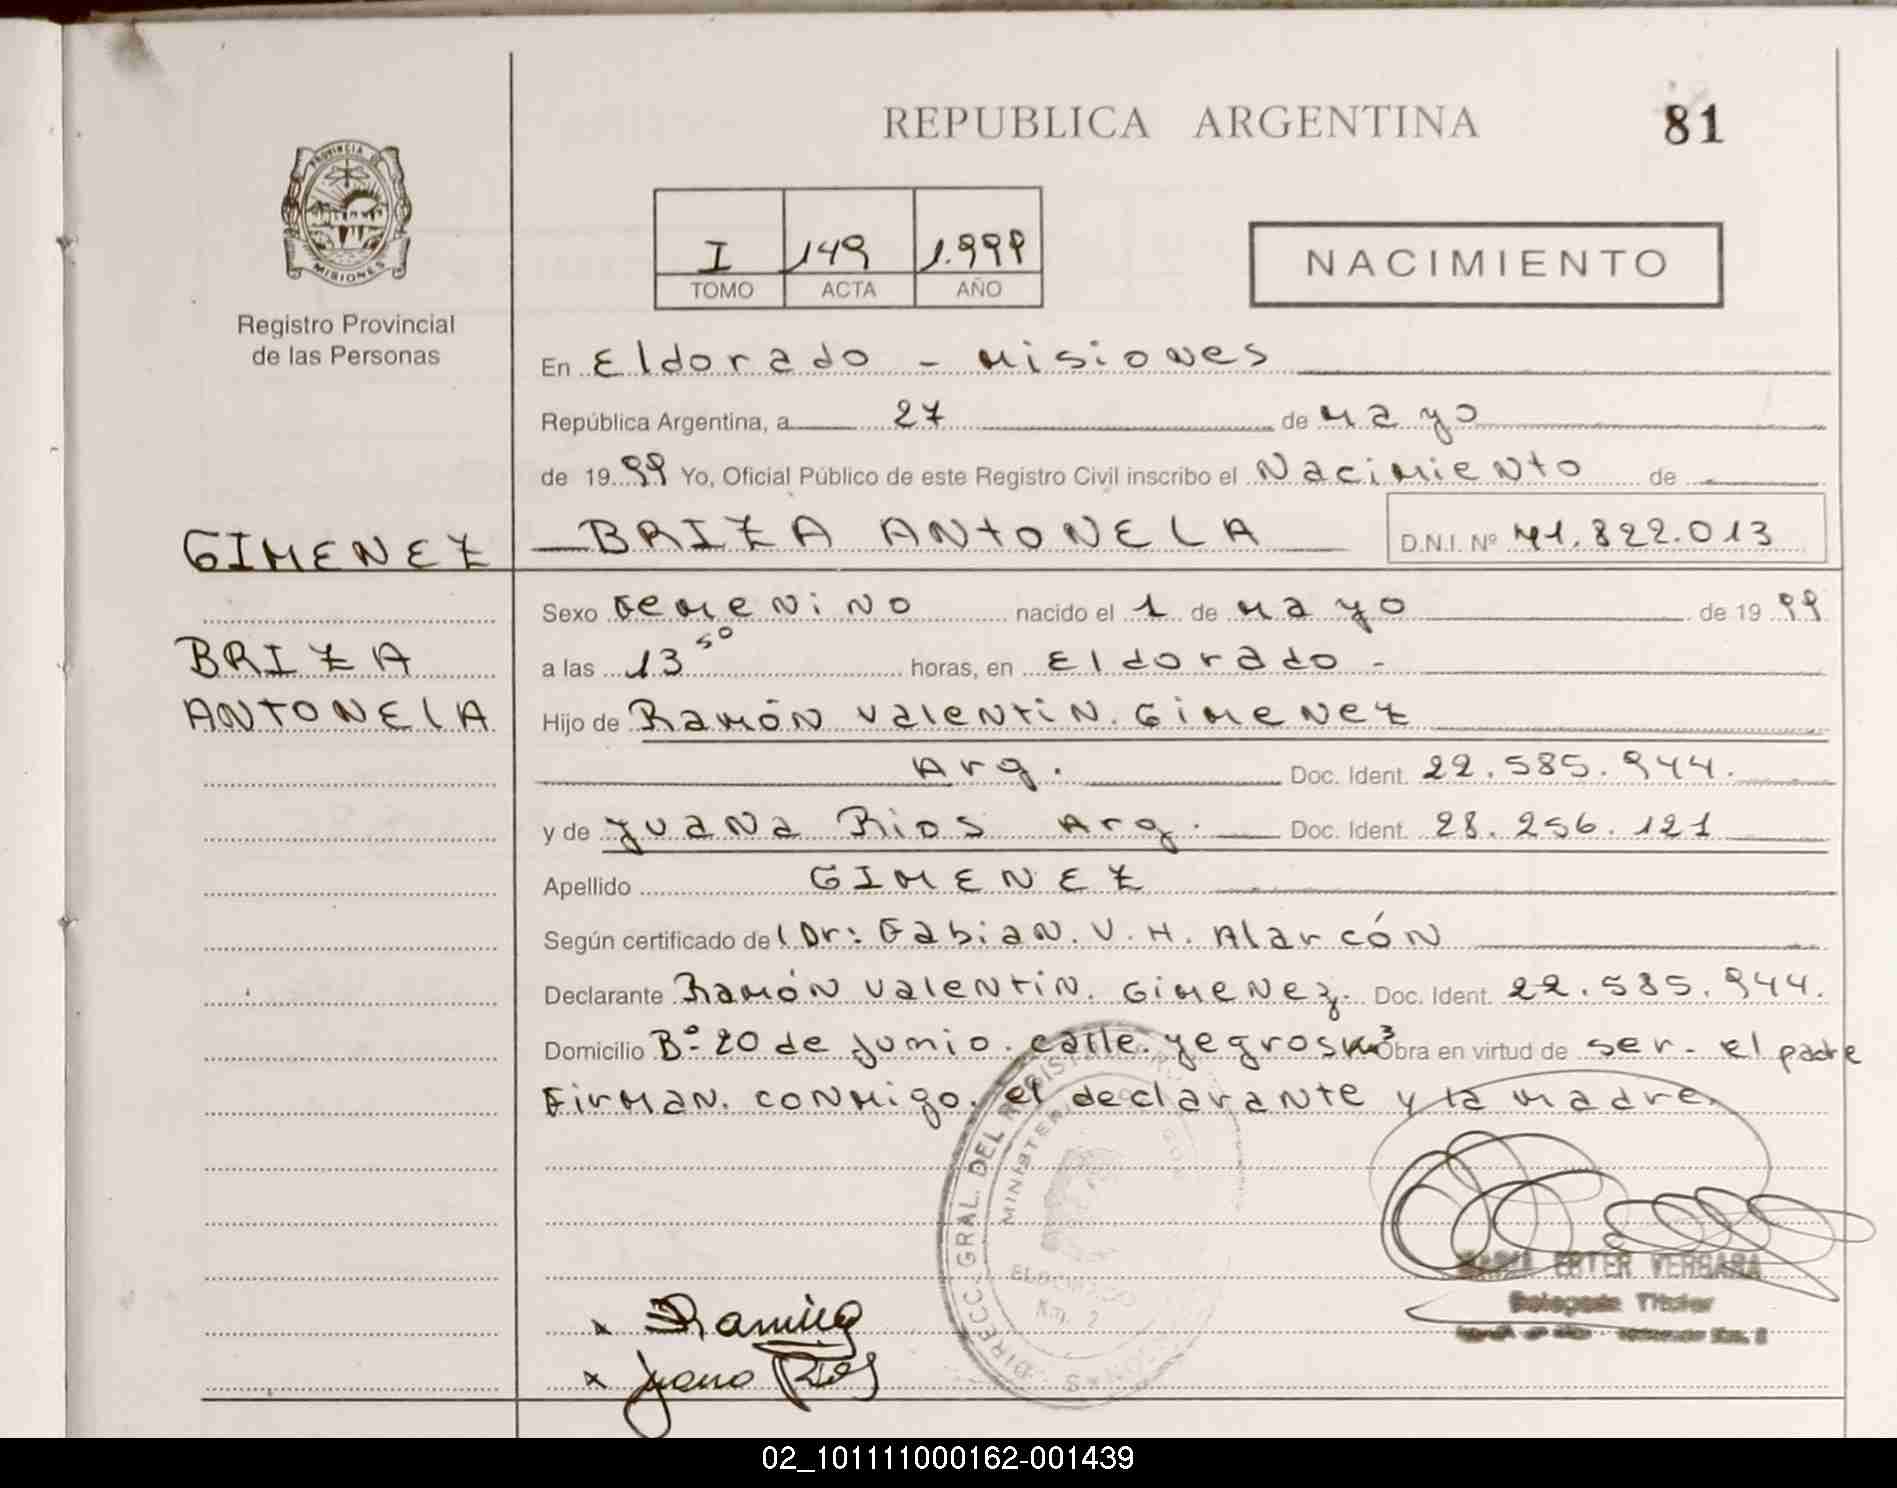 REPUBLICA ARGENTINA
81
PROVINCIA DE
MISIONES
Registro Provincial
de las Personas
I 149 1.999
TOMO ACTA AÑO
NACIMIENTO
En Eldorado - Misiones
República Argentina, a 27 de Mayo
de 1999 Yo, Oficial Público de este Registro Civil inscribo el Nacimiento de
GIMENEZ
BRIZA ANTONELA D.N.I. Nº 41.822.013
Sexo Femenino nacido el 1 de Mayo de 1999
BRIZA
a las 13 50 horas, en Eldorado -
ANTONELA
Hijo de Ramón Valentin. Gimenez
Arg. Doc. Ident. 22.585.944.
y de Juana Rios Arg. Doc. Ident. 28.256.121
Apellido GIMENEZ
Según certificado del Dr: Fabian. V. H. Alarcón
Declarante Ramón Valentin. Gimenez. Doc. Ident. 22.585.944.
Domicilio Bº 20 de Junio. calle. yegros Obra en virtud de ser - el padre
Firman. conmigo. el declarante y la madre.
DIRECC. GRAL. DEL REGISTRO
MINISTERIO
ELDORADO
Km. 2
EBTER VERGARA
Delegada Titular
x
x Juana Rios
02_101111000162-001439